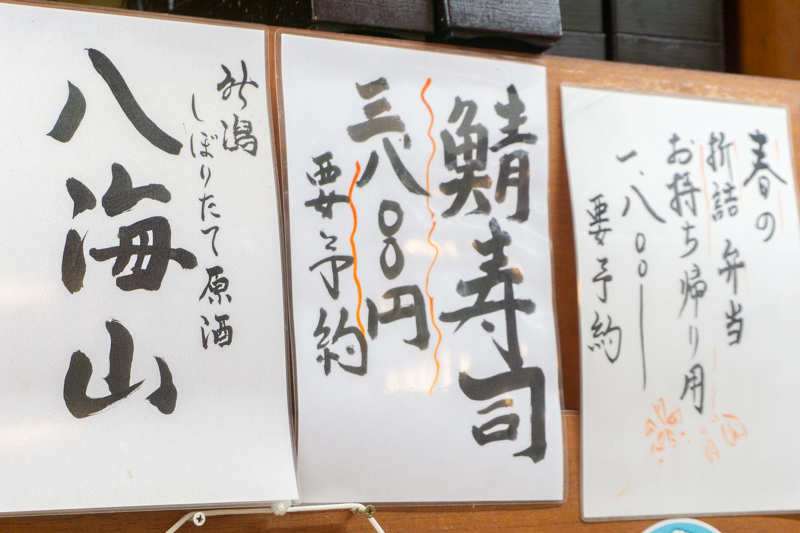 春の
折詰 弁当
お持ち帰り用
一、八〇〇
要予約
鯖寿司
三八〇〇円
要予約
新潟
しぼりたて原酒
八海山